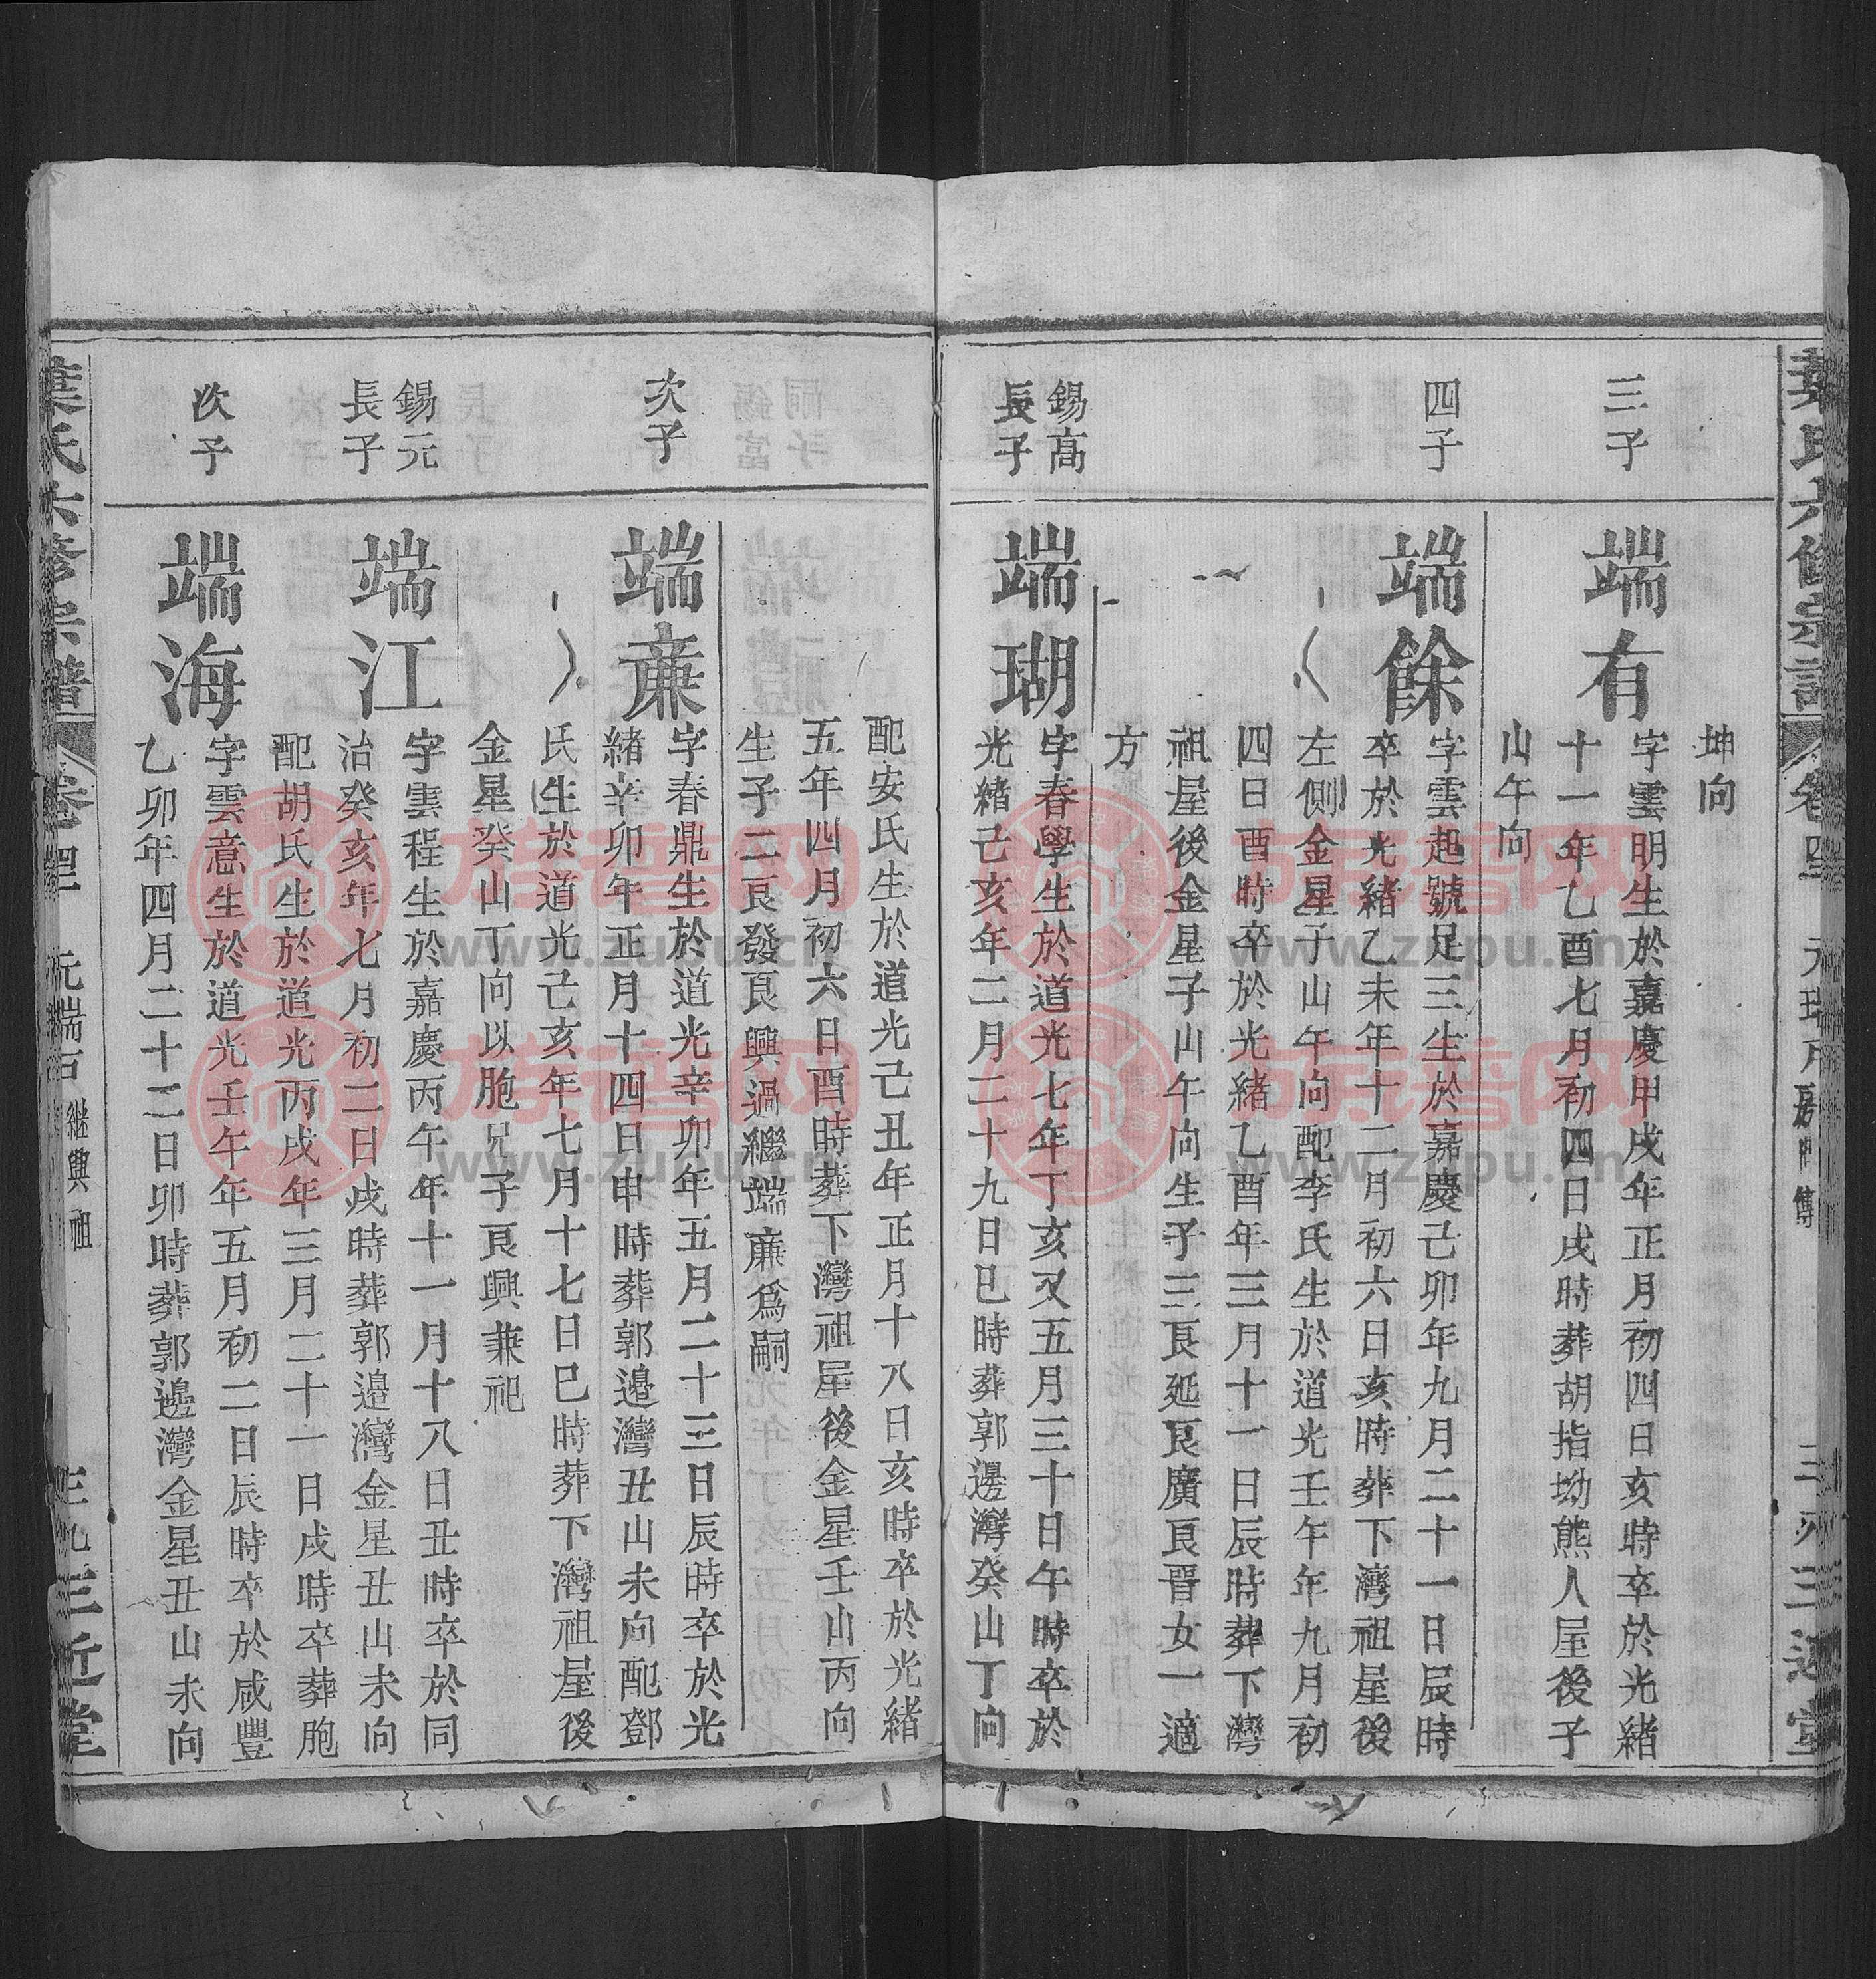 三子
四子
錫高
長子
坤向
端有
字雲明生於嘉慶甲戌年正月初四日亥時卒於光緒
十一年乙酉七月初四日戌時葬胡指坳熊人屋後子
山午向
端餘
字雲起號足三生於嘉慶己卯年九月二十一日辰時
卒於光緒乙未年十二月初六日亥時葬下灣祖屋後
左側金星子山午向配李氏生於道光壬午年九月初
四日酉時卒於光緒乙酉年三月十一日辰時葬下灣
祖屋後金星子山午向生子三艮延艮廣艮晋女一適
方
端瑚
字春學生於道光七年丁亥又五月三十日午時卒於
光緒己亥年二月二十九日巳時葬郭邊灣癸山丁向
次子
錫元
長子
次子
配安氏生於道光己丑年正月十八日亥時卒於光緒
五年四月初六日酉時葬下灣祖屋後金星壬山丙向
生子二艮發艮興過繼端亷爲嗣
端亷
字春鼎生於道光辛卯年五月二十三日辰時卒於光
緒辛卯年正月十四日申時葬郭邊灣丑山未向配鄧
氏生於道光己亥年七月十七日巳時葬下灣祖屋後
金星癸山丁向以胞兄子艮興兼祀
端江
字雲程生於嘉慶丙午年十一月十八日丑時卒於同
治癸亥年七月初二日戌時葬郭邊灣金星丑山未向
配胡氏生於道光丙戌年三月二十一日戌時卒葬胞
端海
字雲意生於道光壬午年五月初二日辰時卒於咸豐
乙卯年四月二十二日卯時葬郭邊灣金星丑山未向
葉氏六修宗譜
卷四
元端石
繼興祖
三九
三近堂
族譜网
www.zupu.cn
族譜网
www.zupu.cn
族譜网
www.zupu.cn
族譜网
www.zupu.cn